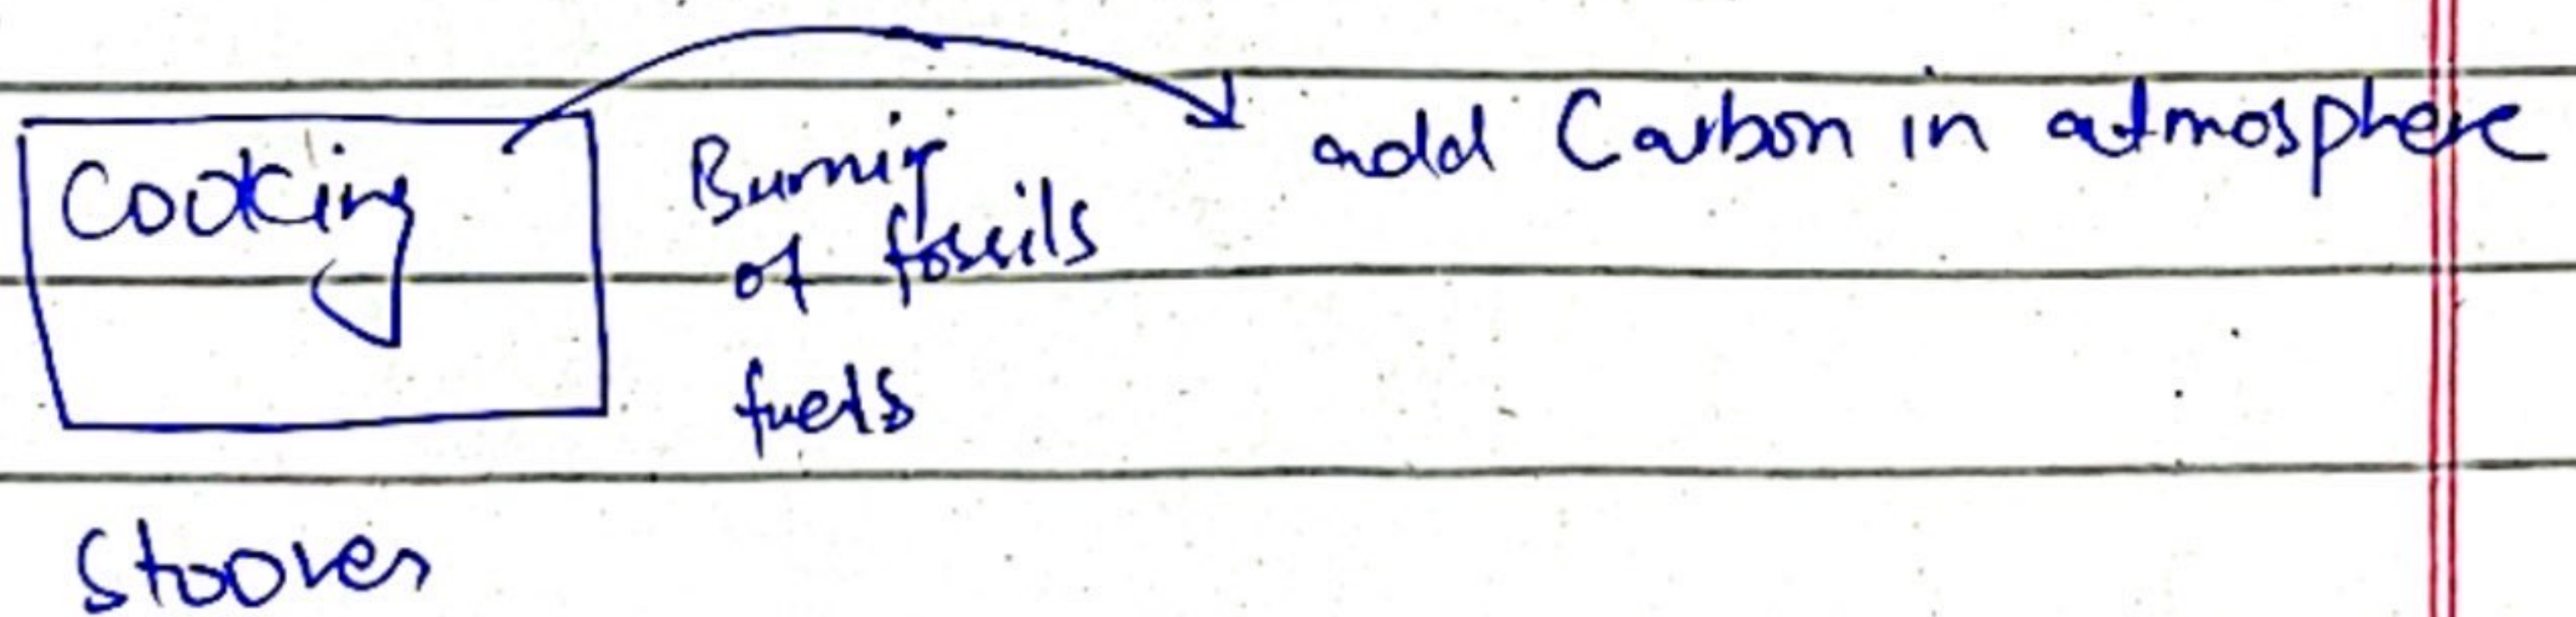 Cooking
Burning
of fossils
fuels
add Carbon in atmosphere
Stooves